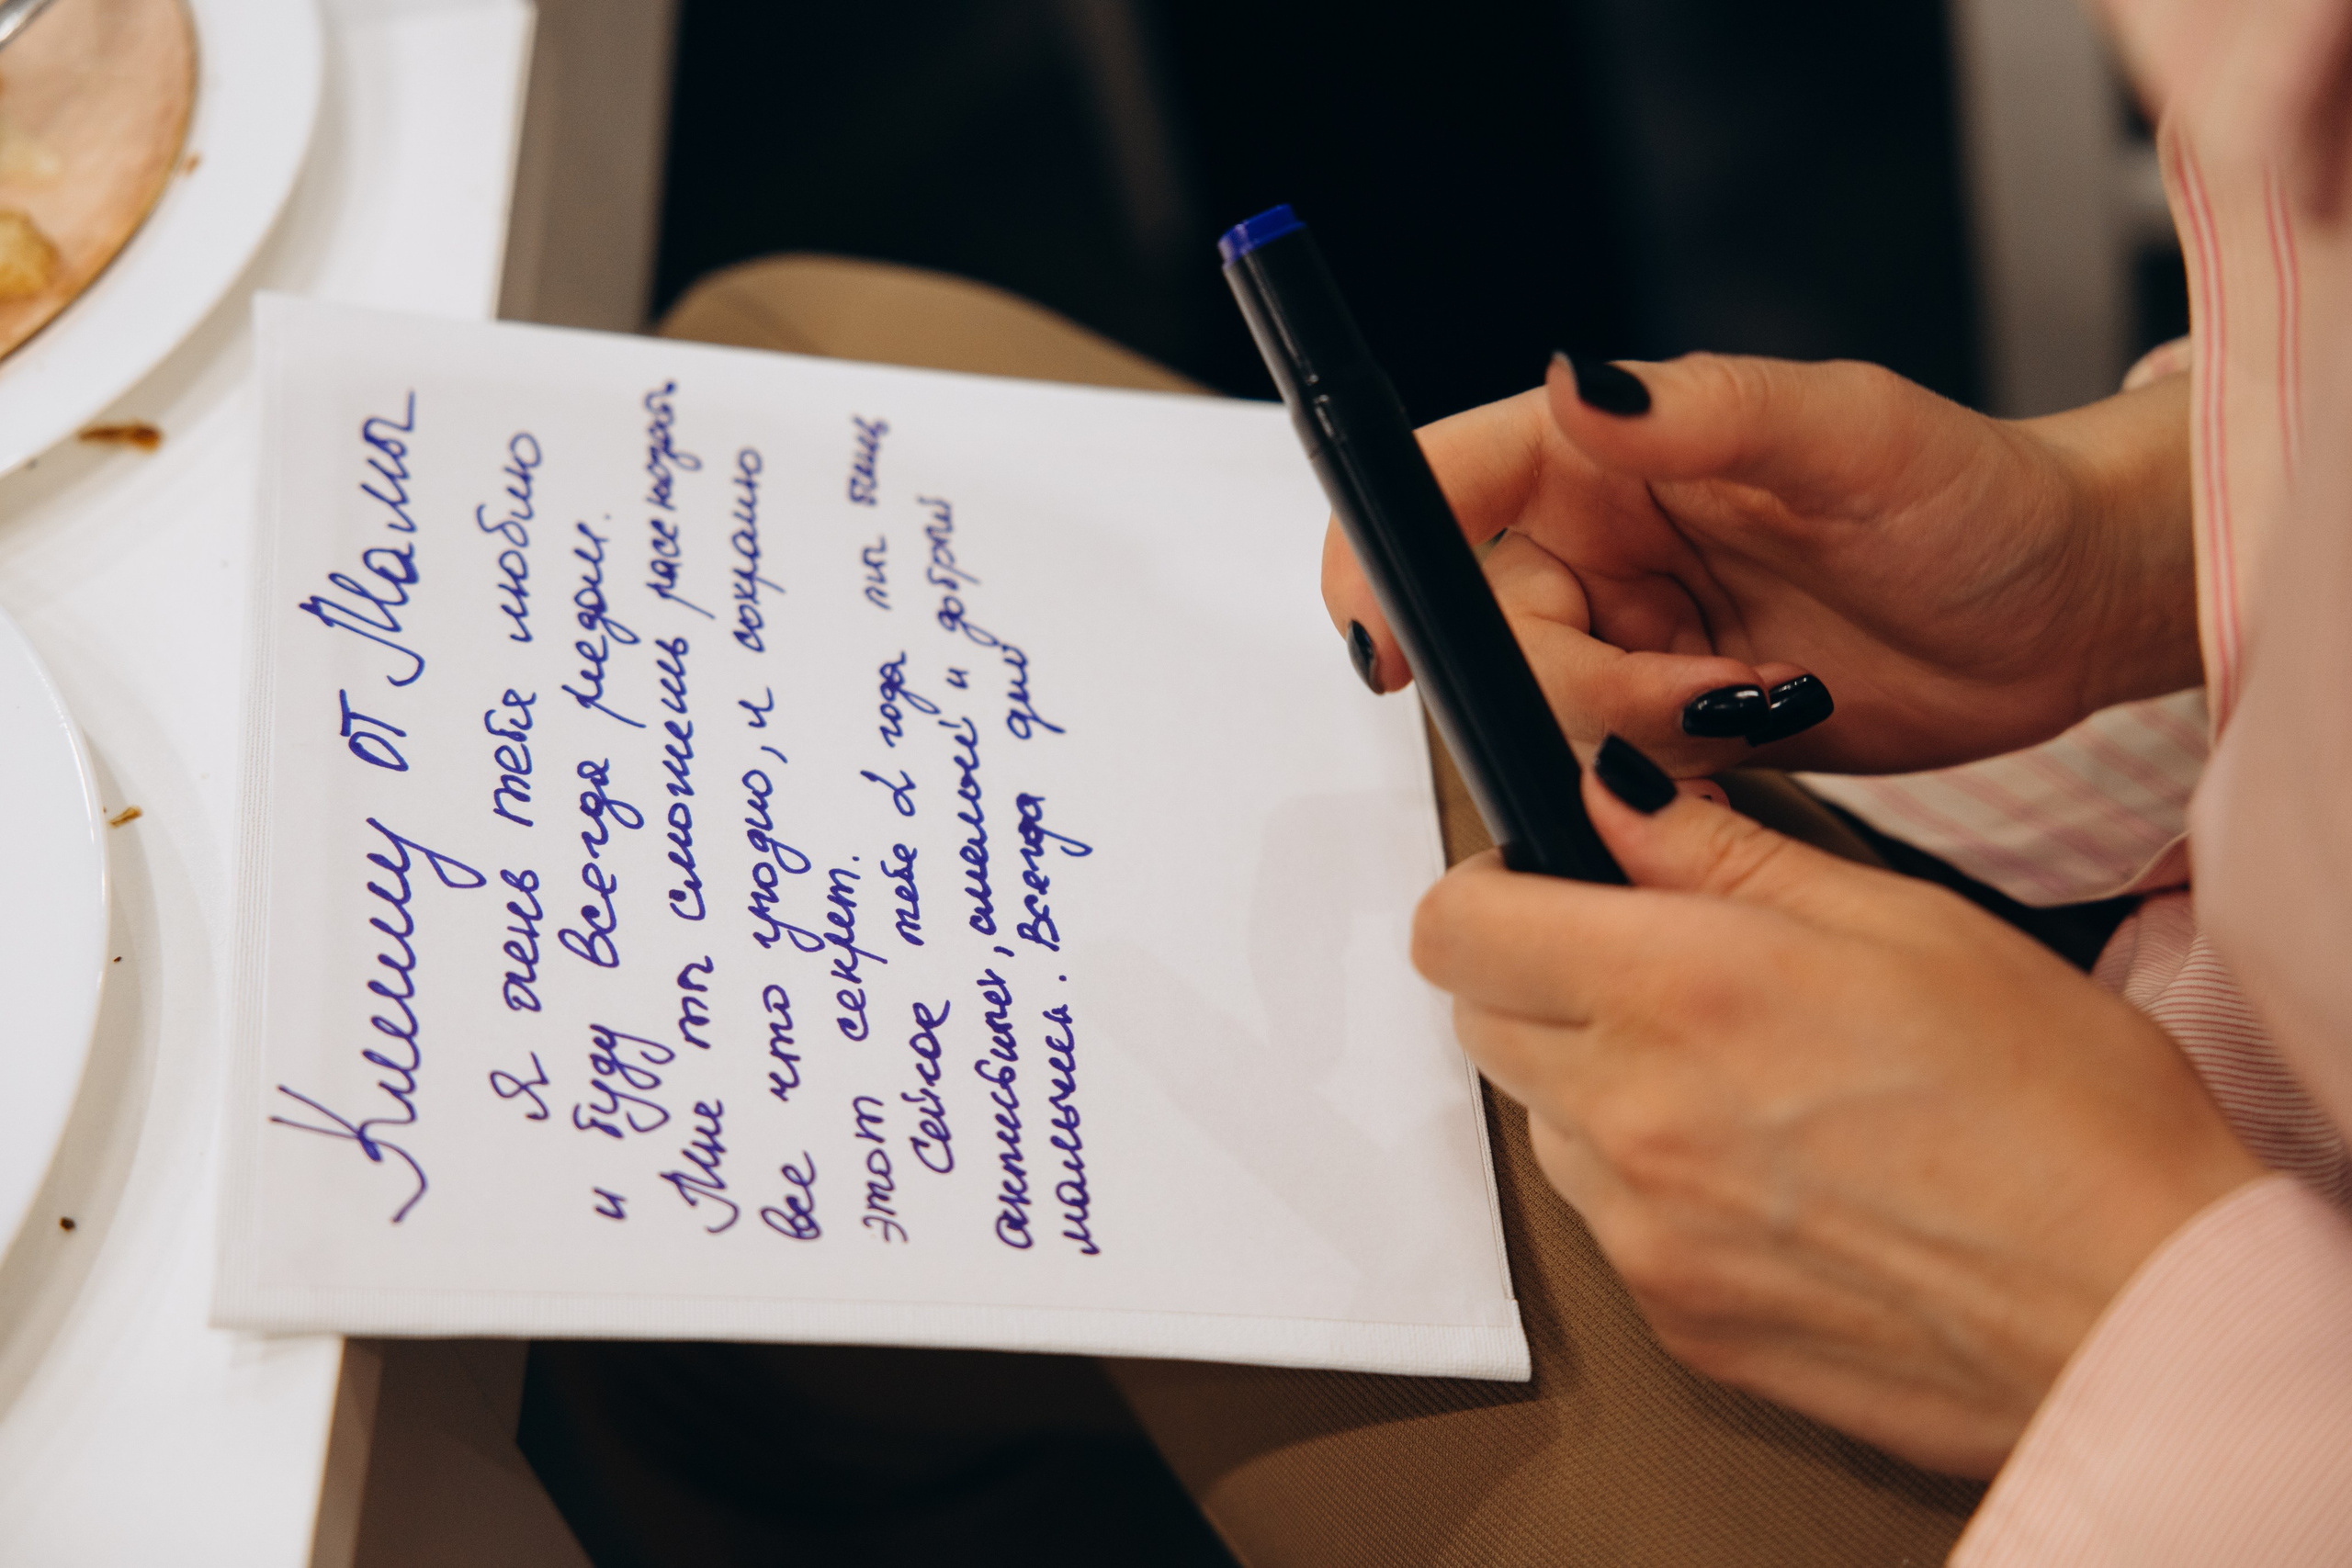 Климу от Мамы
Я очень тебя люблю
и буду всегда рядом.
Мне ты сможешь рассказать
все что угодно, и я сохраню
этот секрет.
Сейчас тебе 2 года ты
активный, смелый и добрый
мальчик. Всегда